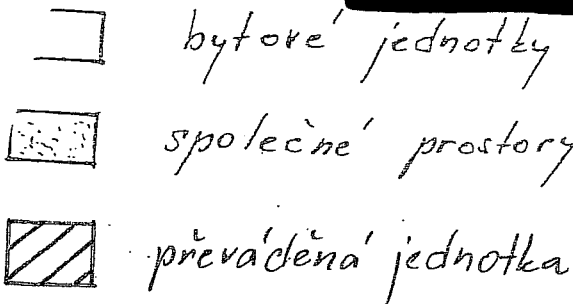 bytové jednotky
společné prostory
převáděná jednotka